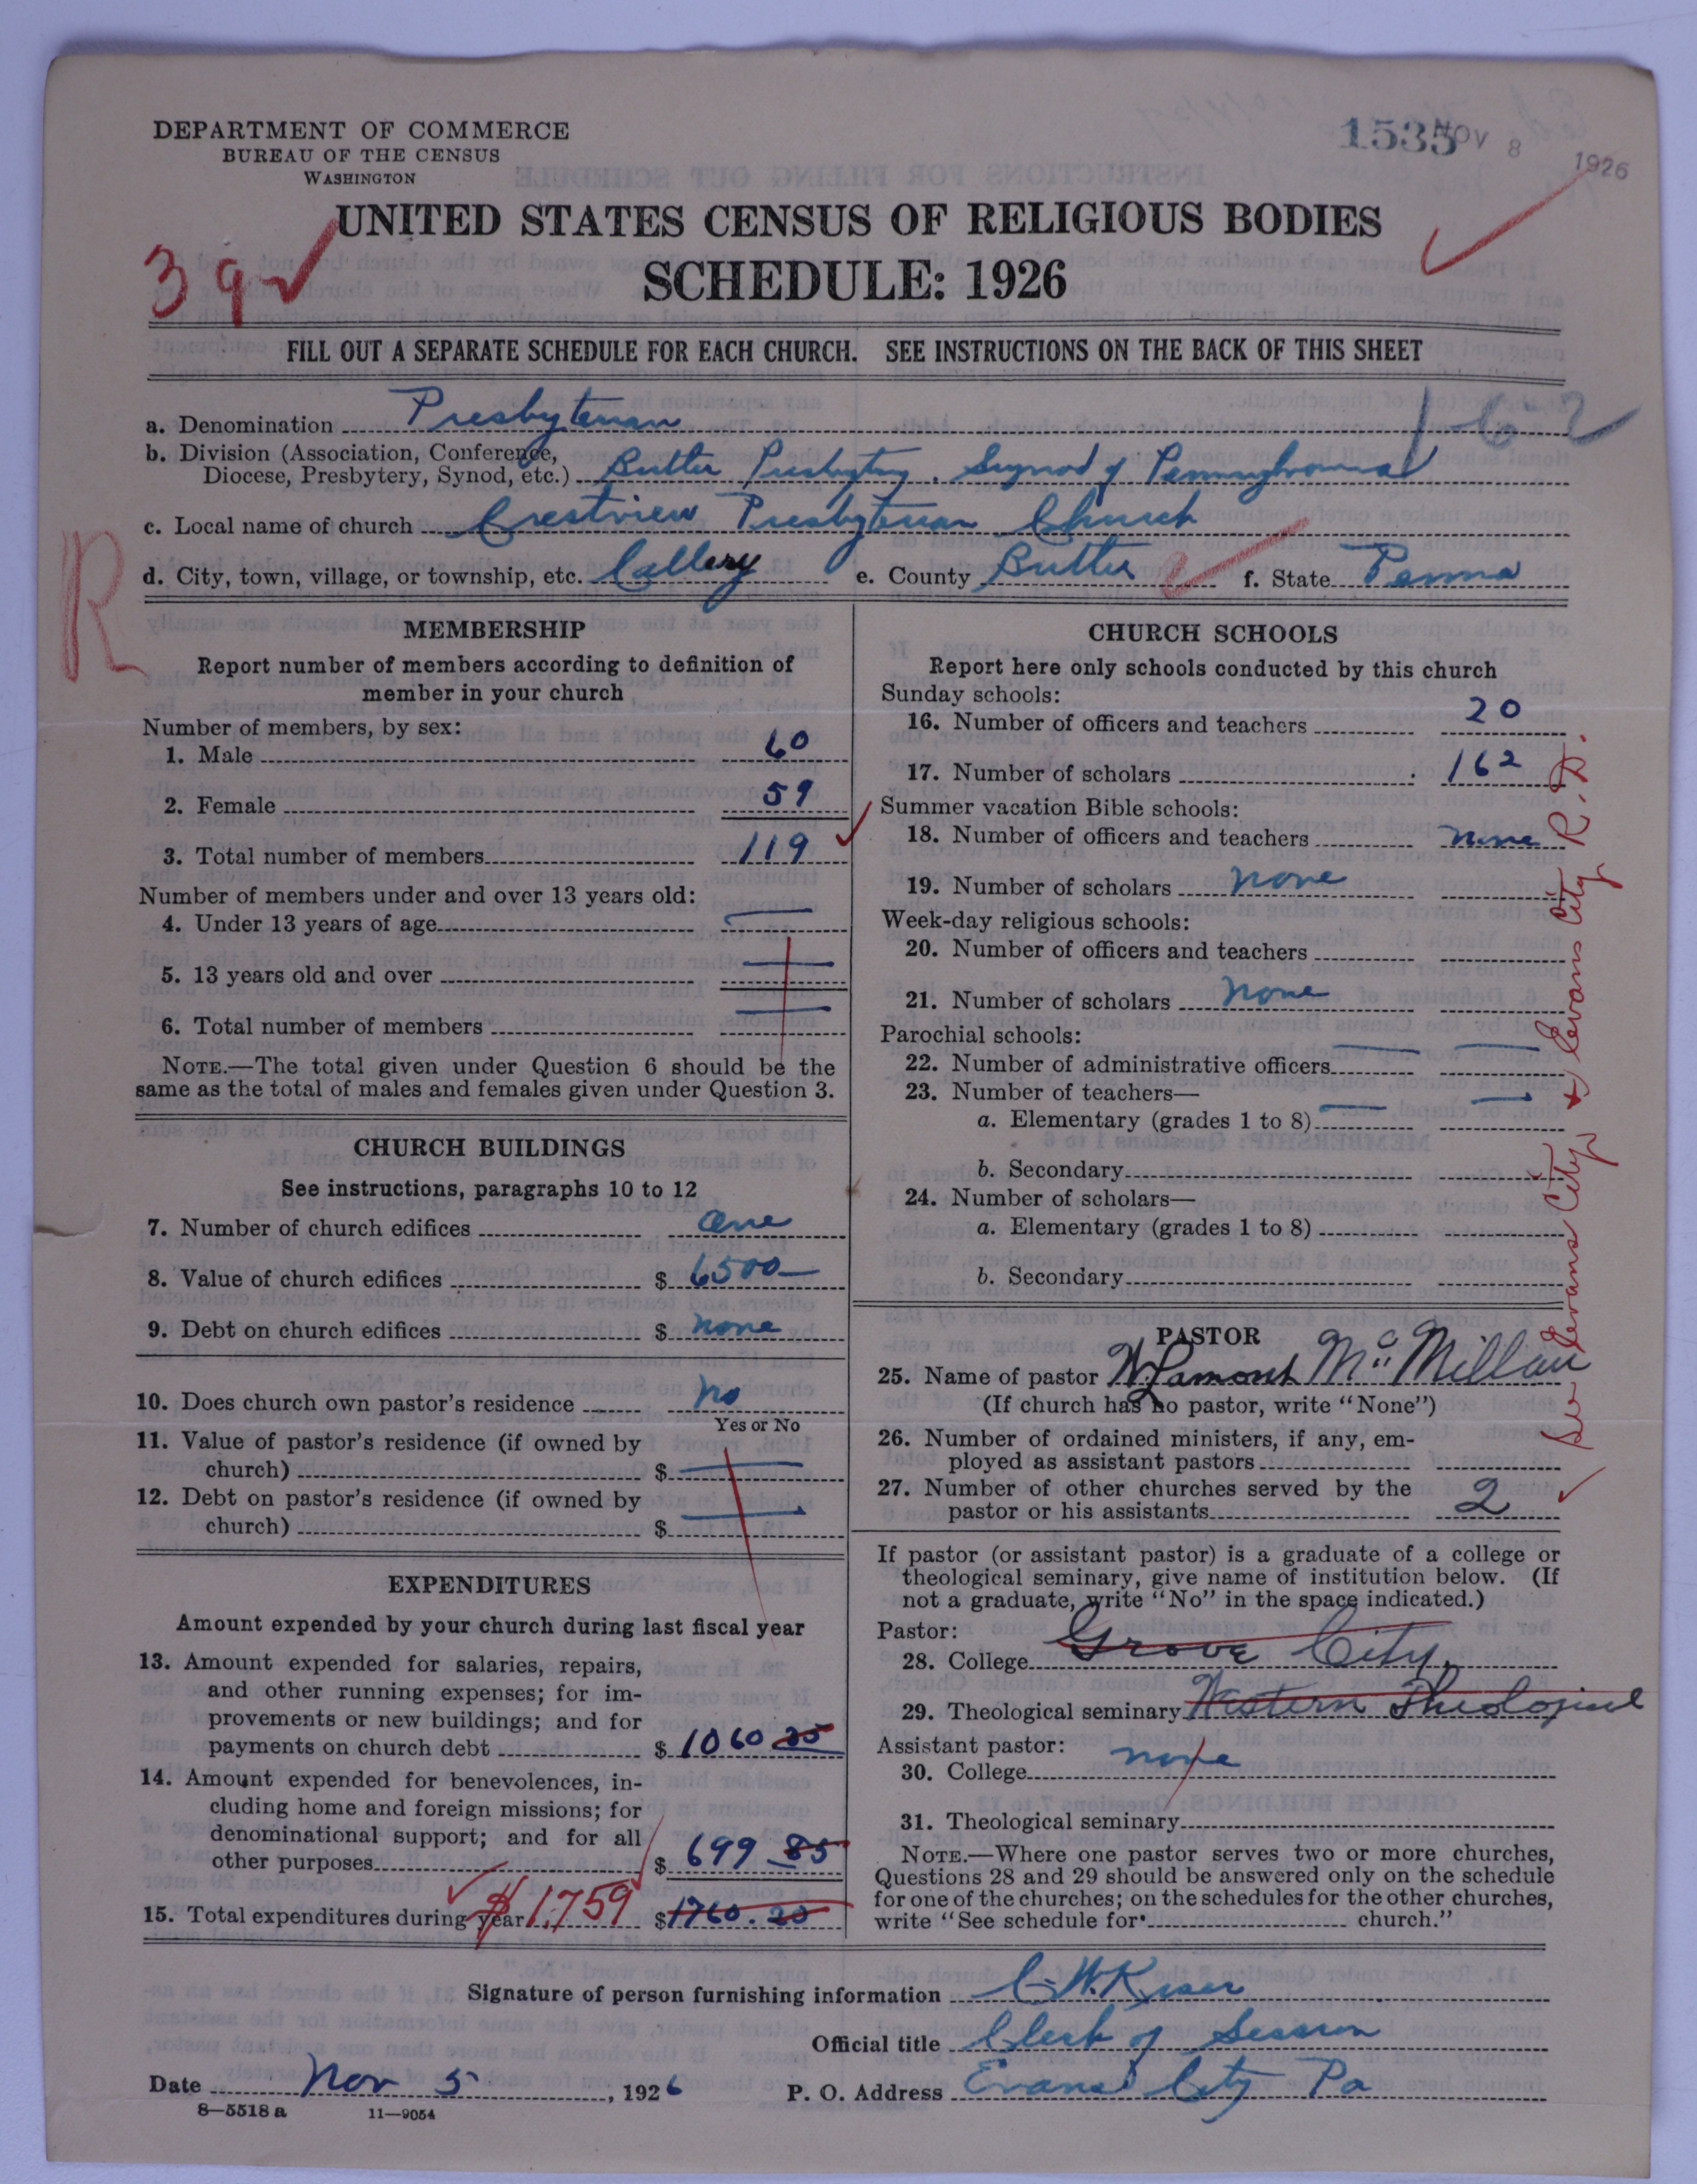 DEPARTMENT OF COMMERCE
BUREAU OF THE CENSUS
WASHINGTON
1535
NOV 8 1926
UNITED STATES CENSUS OF RELIGIOUS BODIES
SCHEDULE: 1926
39
FILL OUT A SEPARATE SCHEDULE FOR EACH CHURCH. SEE INSTRUCTIONS ON THE BACK OF THIS SHEET
a. Denomination Presbyterian
1-6-2
b. Division (Association, Conference,
Diocese, Presbytery, Synod, etc.) Butler Presbytery. Synod of Pennsylvania
c. Local name of church Crestview Presbyterian Church
d. City, town, village, or township, etc. Callery e. County Butler f. State Penna
R
MEMBERSHIP
Report number of members according to definition of
member in your church
Number of members, by sex:
1. Male 60
2. Female 59
3. Total number of members 119
Number of members under and over 13 years old:
4. Under 13 years of age
5. 13 years old and over
6. Total number of members
NOTE.—The total given under Question 6 should be the
same as the total of males and females given under Question 3.
CHURCH BUILDINGS
See instructions, paragraphs 10 to 12
7. Number of church edifices one
8. Value of church edifices $ 6500—
9. Debt on church edifices $ none
10. Does church own pastor's residence no
Yes or No
11. Value of pastor's residence (if owned by
church) $
12. Debt on pastor's residence (if owned by
church) $
EXPENDITURES
Amount expended by your church during last fiscal year
13. Amount expended for salaries, repairs,
and other running expenses; for im-
provements or new buildings; and for
payments on church debt $ 1060 35
14. Amount expended for benevolences, in-
cluding home and foreign missions; for
denominational support; and for all
other purposes $ 699 85
15. Total expenditures during year $1,759 $1760.20
CHURCH SCHOOLS
Report here only schools conducted by this church
Sunday schools:
16. Number of officers and teachers 20
17. Number of scholars 162
Summer vacation Bible schools:
18. Number of officers and teachers none
19. Number of scholars none
Week-day religious schools:
20. Number of officers and teachers
21. Number of scholars none
Parochial schools:
22. Number of administrative officers
23. Number of teachers—
a. Elementary (grades 1 to 8)
b. Secondary
24. Number of scholars—
a. Elementary (grades 1 to 8)
b. Secondary
PASTOR
25. Name of pastor W. Lamont McMillan
(If church has no pastor, write "None")
26. Number of ordained ministers, if any, em-
ployed as assistant pastors
27. Number of other churches served by the
pastor or his assistants 2
If pastor (or assistant pastor) is a graduate of a college or
theological seminary, give name of institution below. (If
not a graduate, write "No" in the space indicated.)
Pastor:
28. College Grove City.
29. Theological seminary Western Theological
Assistant pastor:
30. College none
31. Theological seminary
NOTE.—Where one pastor serves two or more churches,
Questions 28 and 29 should be answered only on the schedule
for one of the churches; on the schedules for the other churches,
write "See schedule for church."
See Evans City, & Evans City R.D.
Signature of person furnishing information C. W. Kiser
Official title Clerk of Session
Date Nov 5, 1926 P. O. Address Evans City Pa
8—5518 a 11—9054